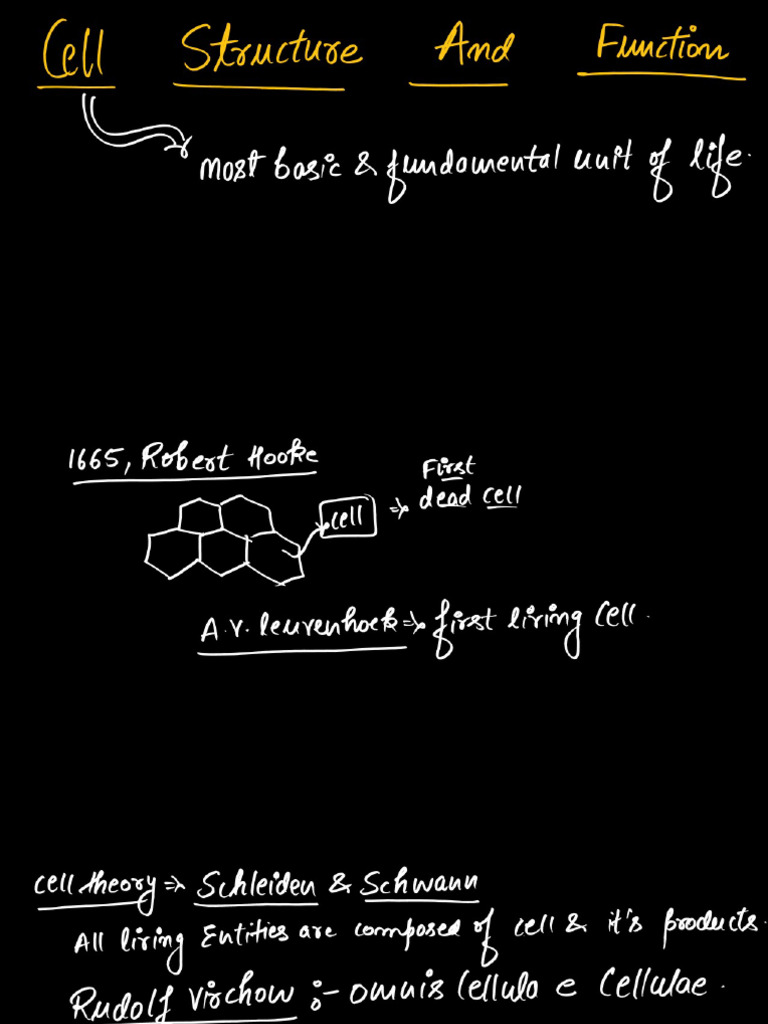 Cell Structure And Function
most basic & fundamental unit of life.
1665, Robert Hooke
First
dead cell
cell ⇒
A.v. leuvenhoek ⇒ first living cell.
cell theory ⇒ Schleiden & Schwann
All living Entities are composed of cell & it's products.
Rudolf Virchow :- omnis cellula e cellulae.